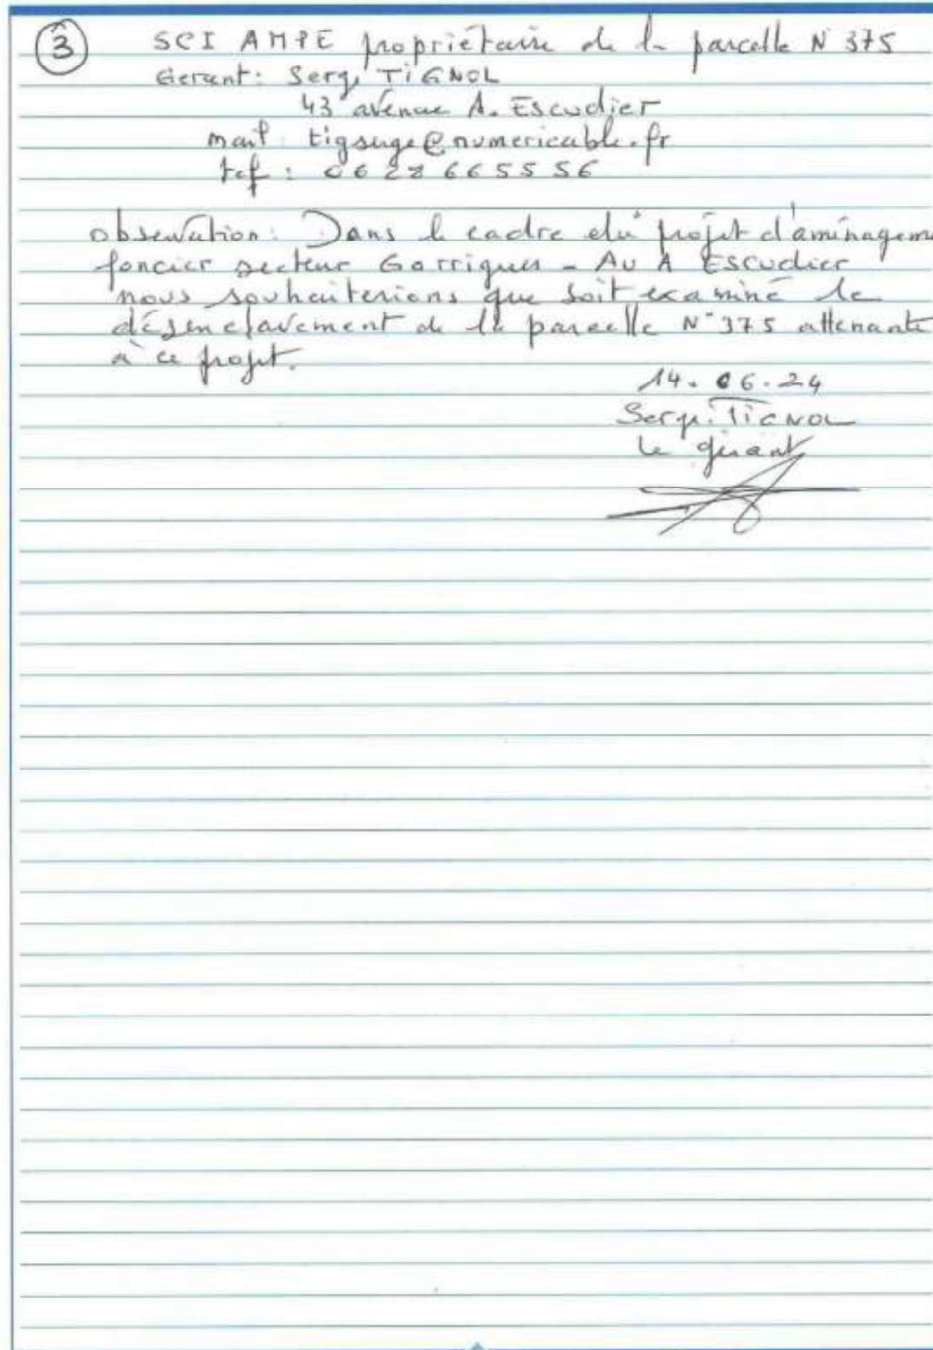 3 SCI AMPE propriétaire de la parcelle N 375
Gerant: Serge TIGNOL
43 avenue A. Escudier
mail tigserge@numericable.fr
tel : 06 28 66 55 56
observation: Dans le cadre du projet d'aménageme
foncier secteur Garrigues - Av A Escudier
nous souhaiterions que soit examiné le
désenclavement de la parcelle N° 375 attenante
à ce projet.
14.06.24
Serge TIGNOL
le gérant